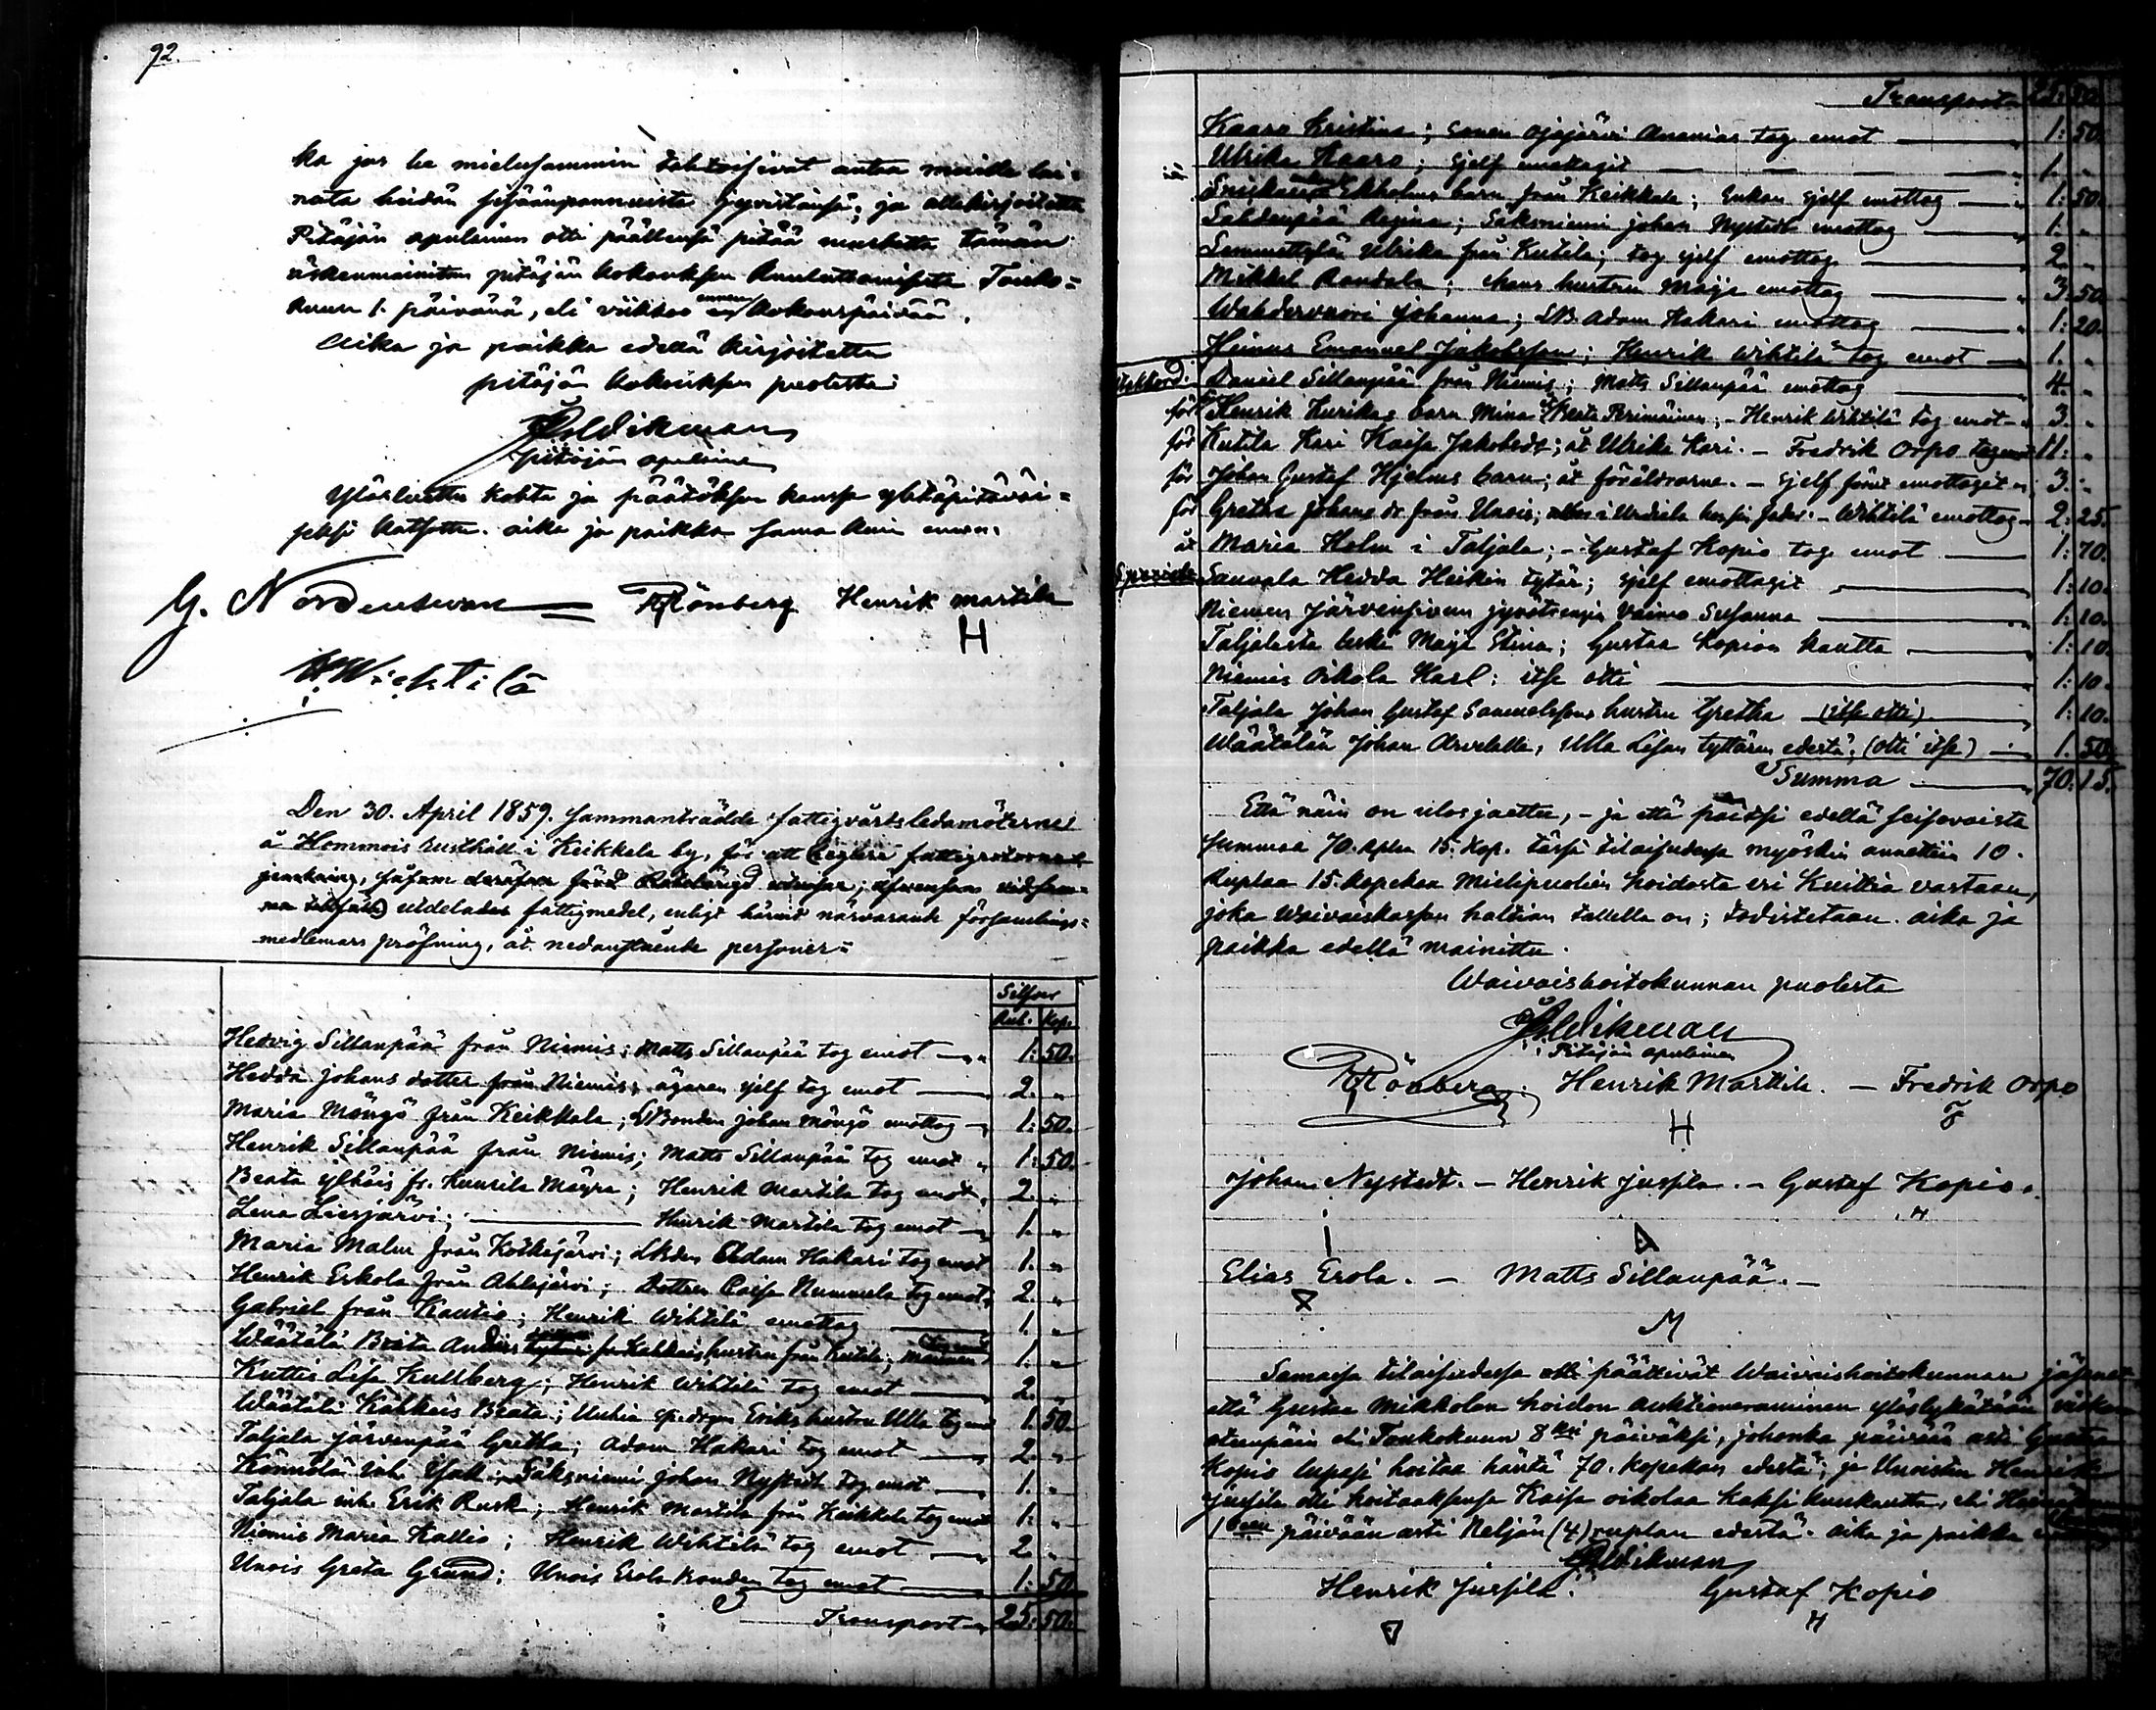 92.
ka jos he mieluisammin tahtoisivat antaa muille lai-
nata heidän sisäänpannuista jyvistänsä; ja allekirjoitettu
Pitäjän apulainen otti päällensä pitää murhetta tämän
äskenmainitun pitäjän kokouksen kuuluttamisesta Touko-
kuun 1. päivänä, eli viikkoo ennen kokouspäivää.
Aika ja paikka edellä kirjoitettu
pitäjän kokouksen puolesta
pitäjän apulainen
Ylösluettu kohta ja päätöksen kanssa yhtäpitäväi-
seksi katsottu. aika ja paikka sama kuin ennen.
G. Nordenswan Rönberg Henrik Martila
H
Wichtilä
Den 30. April 1859. sammanträdde fattigvårdsledamöterne
å Hommois rusthåll i Keikkala by, för att
utdelades fattigmedel, enligt härvid närvarande församlings-
medlemars pröfning, åt nedanstående personer:
Silfver
Rub. Kop.
Hedvig Sillanpää från Niemis; Matts Sillanpää tog emot — " 1: 50.
Hedda Johans dotter från Niemis; ägaren sjelf tog emot — " 2. "
Maria Mängö från Keikkala; LBonden Johan Mängö emottog — " 1: 50.
Henrik Sillanpää från Niemis; Matts Sillanpää tog emot " 1: 50.
Beata Ylhäis fr. Kuurila Mäyrä; Henrik Martila tog emot " 2. "
Lena Liesjärvi; — Henrik Martila tog emot — " 1. "
Maria Malm från Koskejärvi; LBden Adam Hakari tog emot 1. "
Henrik Eskola från Ahlajärvi; Dottren Caisa Nummela tog emot " 2. "
Gabriel från Kautio; Henrik Wihtilä emottog — 1. "
Wäätälä Beata Anders hustru från Kutila; 1. "
Kuttis Lisa Kullberg; Henrik Wihtilä tog emot — 2. "
Wäätälä Kähkäis Beata; Eriks hustru Ulla tog emot 1. 50.
Taljala Järvenpää Gretha; Adam Hakari tog emot — 2. "
Kännölä inh. Isak; Säksniemi Johan Nystedt tog emot — 1. "
Taljala inh. Erik Rusk; Henrik Martila från Keikkala tog emot 1: "
Niemis Maria Kallio; Henrik Wihtilä tog emot — 2. "
Unois Greta Grund; Unois Erola Bonden tog emot — 1: 50
Transport " 25: 50.
Transport 25: 50
Kaaro Kristina; Ojajärvi Ananias tog emot — 1: 50.
Ulrika Kaaro; sjelf emottagit — 1. "
Ekholms barn från Keikkala; Enkan sjelf emottog — " 1: 50.
Lahdenpää Regina; Säksniemi Johan Nystedt emottog — " 1. "
Ulrika från Kutila; tog sjelf emottog — " 2 "
Mikkel Randala; hans hustru Maja emottog — " 3. 50.
Wahdervuori Johanna; LB. Adam Hakari emottog — " 1: 20.
Emanuel Jakobsson; Henrik Wihtilä tog emot — 1. "
Daniel Sillanpää från Niemis; Matts Sillanpää emottog — " 4. "
för Henrik Kurikas barn Mina åt Beata Perimäinen; - Henrik Wihtilä tog emot - " 3. "
för Kutila Kari Kaisa Jakobsdr; åt Ulrika Kari. - Fredrik Orpo tog emot 11: "
för Johan Gustaf Hjelms barn; åt föräldrarne. - sjelf förut emottagit " 3. "
för Gretha Johans dr från Unois; - Wihtilä emottog - 2: 25.
åt Maria Holm i Taljala; - Gustaf Kopio tog emot — 1: 70.
Sauvala Hedda Heikin tytär; sjelf emottagit — " 1: 10.
Niemen Järvensivun vaimo Susanna — " 1: 10.
Taljalasta leski Maja Stina; Gustaa Kopion kautta — " 1: 10.
Niemis Oikola Karl; itse otti — 1: 10.
Taljala Johan Gustaf Samuelssons hustru Gretha — (itse otti) — " 1: 10.
Wäätälän Johan Arvelalle, Ulla Lisan tyttären edestä; (otti itse) — " 1. 50.
Summa — " 70: 15.
Että näin on ulosjaettu, - ja että paitsi edellä seisovaista
summaa 70. Rplaa 15. Kop. tässä tilaisudessa myöskin annettiin 10.
Ruplaa 15. kopekaa Mielipuolien hoidosta eri Kuittia vastaan,
joka Waivaiskassan haltian tallella on; todistetaan. aika ja
paikka edellä mainittu.
Waivaishoitokunnan puolesta
Pitäjän apulainen
Rönberg. Henrik Martila. - Fredrik Orpo
H F
Johan Nystedt. - Henrik Jussila. - Gustaf Kopio.
Elias Erola. - Matts Sillanpää. -
M
Samassa tilaisudessa päättivät Waivaishoitokunnan jäsenet
että Gustaa Mikkolan hoidon auktioneraaminen ylöslykätään
eli Toukokuun 8ksi päiväksi, johonka päivään asti Gustaa
Kopio lupasi hoitaa häntä 70. kopekan edestä; ja Unoisten Henrik
Jussila otti hoitaaksensa Kaisa Oikolaa kaksi kuukautta, eli
1 päivään asti Neljän (4) ruplan edestä. aika ja paikka
Henrik Jussila. Gustaf Kopio
H